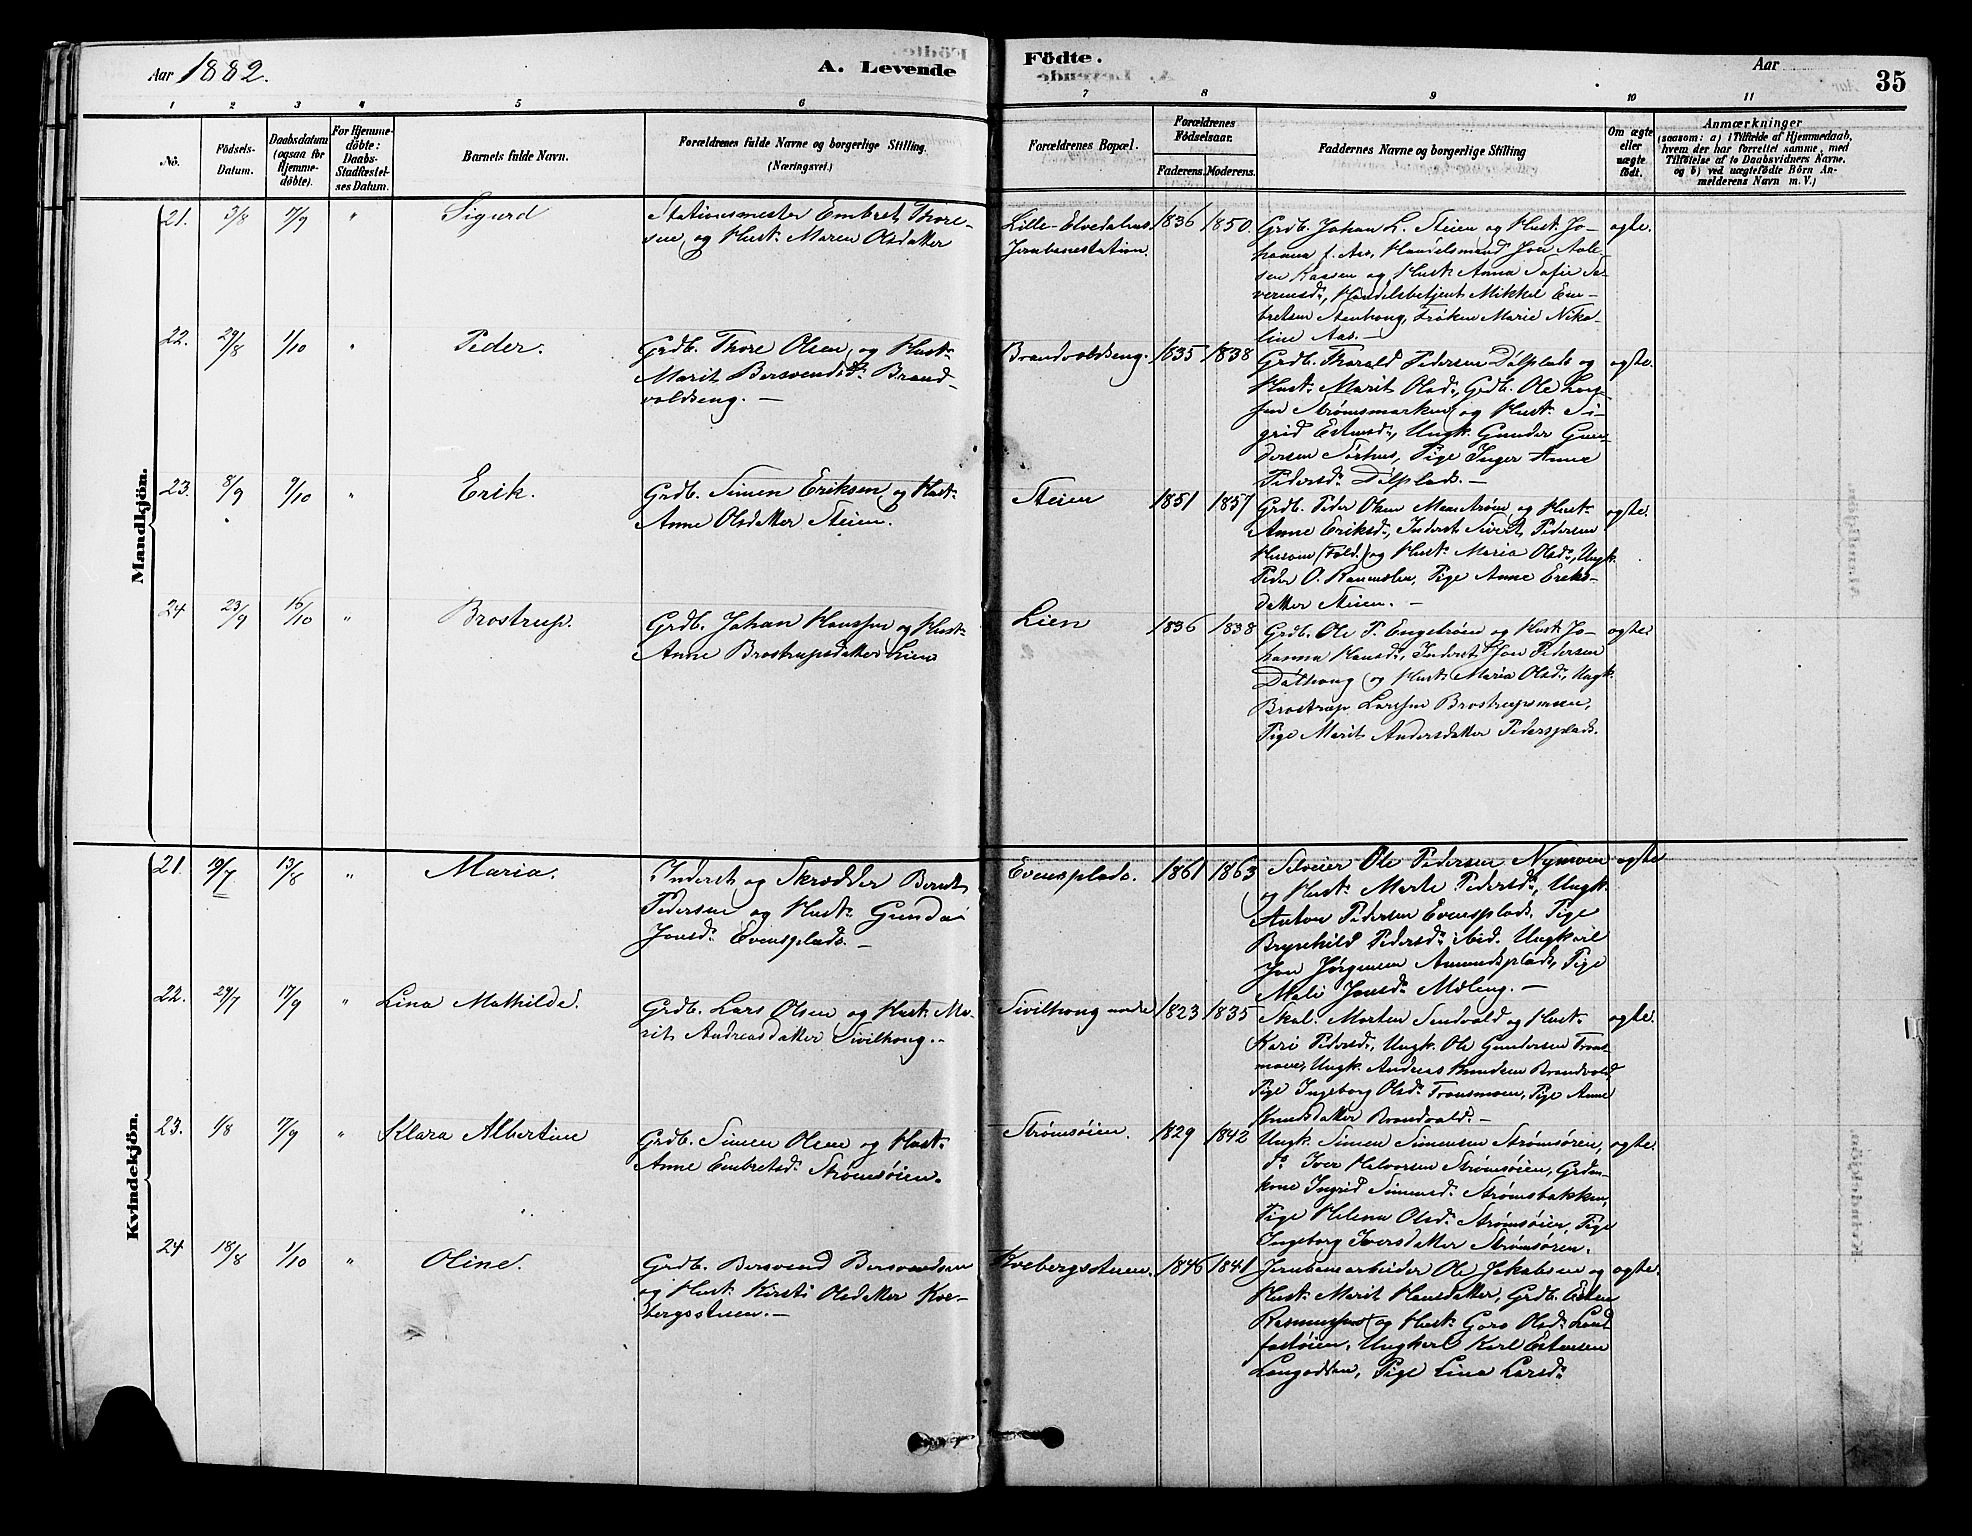 Aar 1882.
A. Levende
Födte.
Aar
35
1 2 3 4 5 6 7 8 9 10 11
No.
Födsels-
Datum.
Daabsdatum
(ogsaa for
Hjemme-
döbte).
For Hjemme-
döbte:
Daabs-
Stadfæstel-
ses Datum.
Barnets fulde Navn.
Forældrenes fulde Navne og borgerlige Stilling
(Næringsvei.)
Forældrenes Bopæl.
Forældrenes
Födselsaar.
Faderens. Moderens.
Faddernes Navne og borgerlige Stilling
Om ægte
eller
uægte
födt.
Anmærkninger
(saasom: a) i Tilfælde af Hjemmedaab,
hvem der har forrettet samme, med
Tilföielse af to Daabsvidners Navne,
og b) ved uægtefödte Börn An-
melderens Navn m. V.)
Mandkjön.
21. 3/8 17/9 " Sigurd
Stationsmester Embret Thore-
sen og Hust. Maren Olsdatter
Lille-Elvedalens
Jernbanestation.
1836 1850.
Grdb. Johan L. Steien og Hust. Jo-
hanna f. Aas, Handelsmand Joen
Kaasen og Hust. Anna Sofie
Handelsbetjent Mikkel Em-
bretsen Stenhoug, Frøken Marie Niko-
line Aas.—
ægte.
22. 29/8 1/10 " Peder.
Grdb. Thore Olsen og Hust.
Marit Bersvendsd. Brand-
voldseng.—
Brandvoldseng.
1835 1838
Grdb. Tharald Pedersen Dølplads og
Hust. Marit Olsd., Grdb. Ole Lars-
sen Strømsmarken og Hust. Si-
grid Estensd., Ungk. Gunder Gun-
dersen Pige Inger Anne
Pedersd. Dølplads.—
ægte.
23. 8/9 9/10 " Erik.
Grdb. Simen Eriksen og Hust.
Anne Olsdatter Steien.
Steien
1851 1857
Grdb. Peder Olsen og Hust.
Anne Eriksd., Inderst Sivert Pedersen
(Fold.) og Hust. Maria Olsd., Ungk.
Peder O. Pige Anne Eriks-
datter Steien.—
ægte.
24 23/9 15/10 " Brostrup.
Grdb. Johan Hanssen og Hust.
Anne Brostrupsdatter Lien
Lien
1836 1838
Grdb. Ole P. Engstrøm og Hust. Jo-
hanna Hansd., Inderst Jon Pedersen
og Hust. Maria Olsd., Ungk.
Brostrup Larssen Brostrupsmoen,
Pige Marit Andersdatter Pedersplads.
ægte
Kvindekjön.
21. 19/7 13/8 " Maria.
Inderst og Skrædder Bernt
Pedersen og Hust. Gunda
Jonsd. Evensplads.—
Evensplads.
1861 1863
Selveier Ole Pedersen Nymoen
og Hust. Marte Pedersd., Ungk.
Anton Pedersen Evensplads, Pige
Brynhild Pedersd. ibid. Ungkarl
Jon Jørgensen Amundsplads, Pige
Mali Jonsd. Moleng.—
ægte
22. 29/7 17/9 " Lina Mathilde.
Grdb. Lars Olsen og Hust. Ma-
rit Andreasdatter Sivilhoug.—
Sivilhoug nordre
1823 1835
Skol. Morten Sendvold og Hust.
Kari Pedersd., Ungk. Ole Gundersen Trons-
moen, Ungk. Andreas Knudsen Brandvold,
Pige Ingeborg Olsd. Tronsmoen, Pige Anne
Knudsdatter Brandvold.—
ægte.
23. 1/8 17/9 " Klara Albertine
Grdb. Simen Olsen og Hust.
Anne Embretsd. Strømsøien.
Strømsøien.
1829 1842
Ungk. Simen Simensen Strømsøien,
do. Iver Halvorsen Strømsøien, Grdm.-
kone Ingrid Simensd. Strømsbakken,
Pige Helena Olsd. Strømsøien, Pige
Ingeborg Iversdatter Strømsøien.
ægte.
24 18/8 1/10 " Oline.
Grdb. Bersvend Bersvendsen
og Hust. Kirsti Olsdatter Kve-
bergsstuen.—
Kvebergsstuen.
1846 1841
Jernbanearbeider Ole Jakobsen og
Hust. Marit Hansdatter, Grdb. Esten
Rasmussen og Hust. Goro Olsd.
Ungkarl Karl Estensen
Pige Lina Larsd.
ægte.